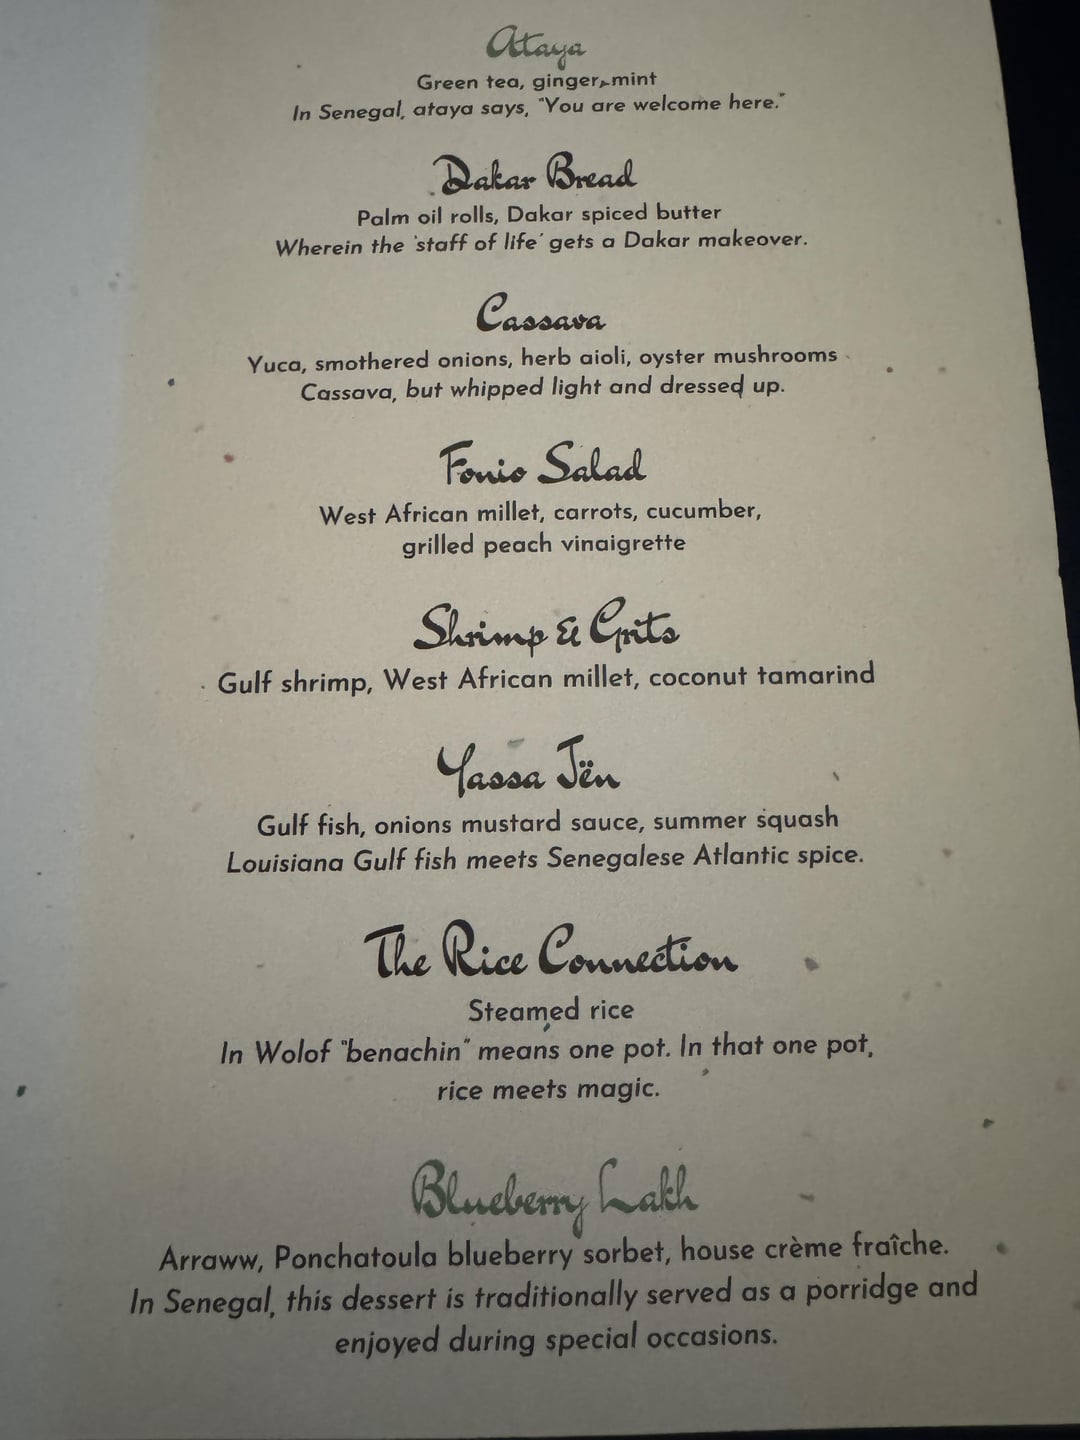 Ataya
Green tea, ginger, mint
In Senegal, ataya says, "You are welcome here."
Dakar Bread
Palm oil rolls, Dakar spiced butter
Wherein the 'staff of life' gets a Dakar makeover.
Cassava
Yuca, smothered onions, herb aioli, oyster mushrooms
Cassava, but whipped light and dressed up.
Fonio Salad
West African millet, carrots, cucumber,
grilled peach vinaigrette
Shrimp & Grits
Gulf shrimp, West African millet, coconut tamarind
Yassa Jën
Gulf fish, onions mustard sauce, summer squash
Louisiana Gulf fish meets Senegalese Atlantic spice.
The Rice Connection
Steamed rice
In Wolof "benachin" means one pot. In that one pot,
rice meets magic.
Blueberry Lakh
Arraww, Ponchatoula blueberry sorbet, house crème fraîche.
In Senegal, this dessert is traditionally served as a porridge and
enjoyed during special occasions.